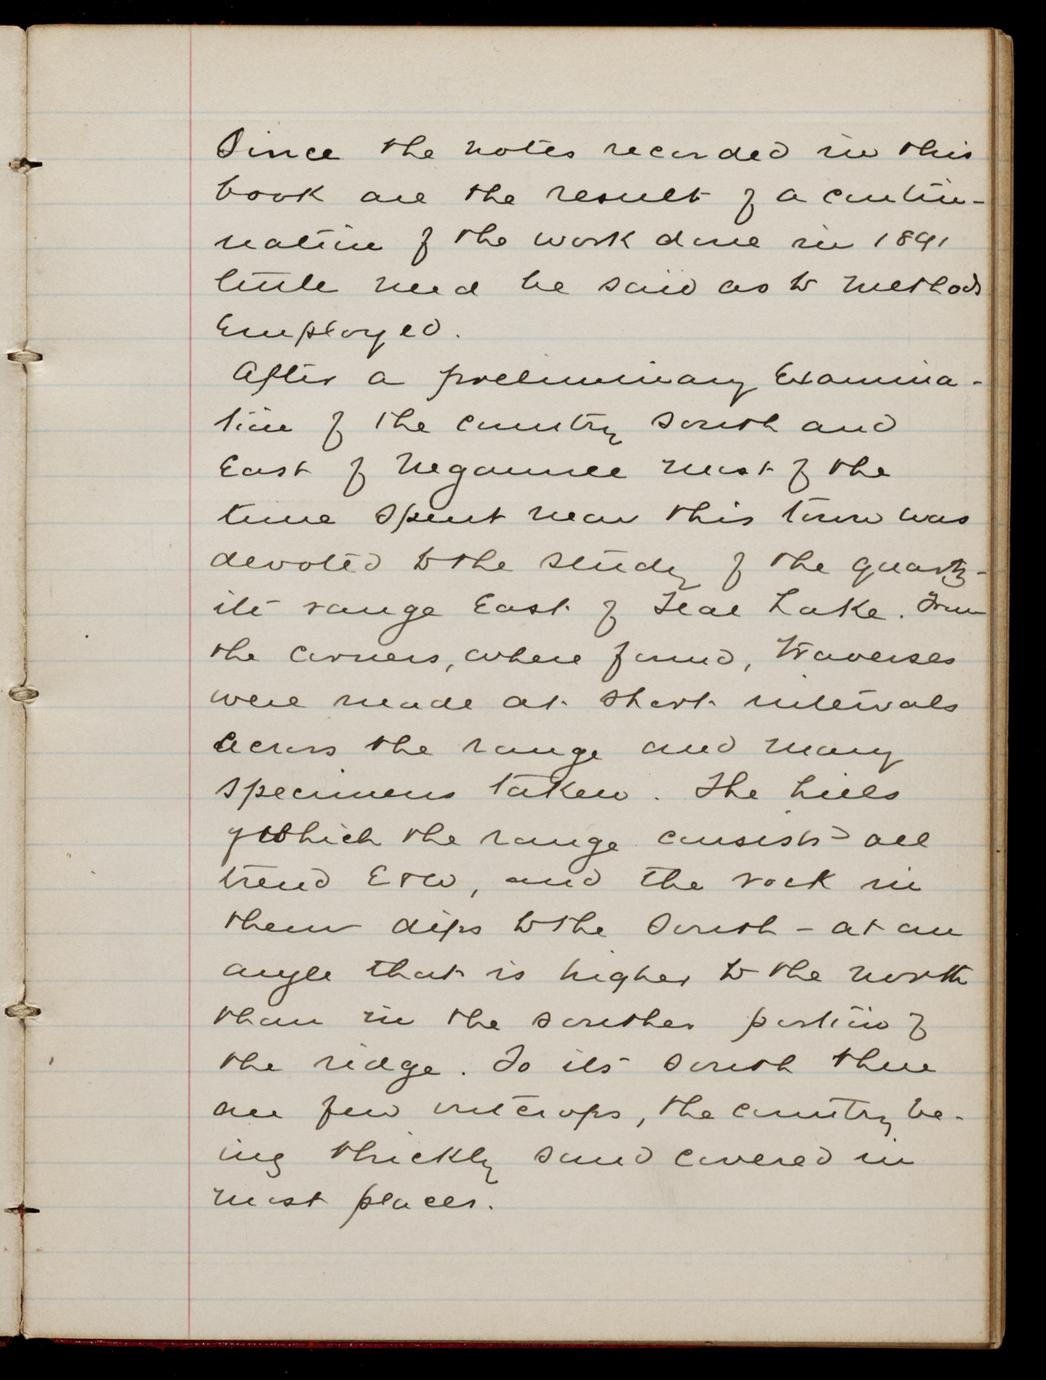 Since the notes recorded in this
book are the result of a contin-
uation of the work done in 1891
little need be said as to methods
employed.
After a preliminary Examina-
tion of the country South and
East of Negaunee most of the
time spent near this town was
devoted to the study of the quartz-
ite range East of Teal Lake. From
the corners, where found, traverses
were made at short intervals
across the range and many
specimens taken. The hills
of which the range consists all
trend E & W, and the rock in
them dips to the South - at an
angle that is higher to the north
than in the souther portion of
the ridge. To its South there
are few outcrops, the country be-
ing thickly sand covered in
most places.